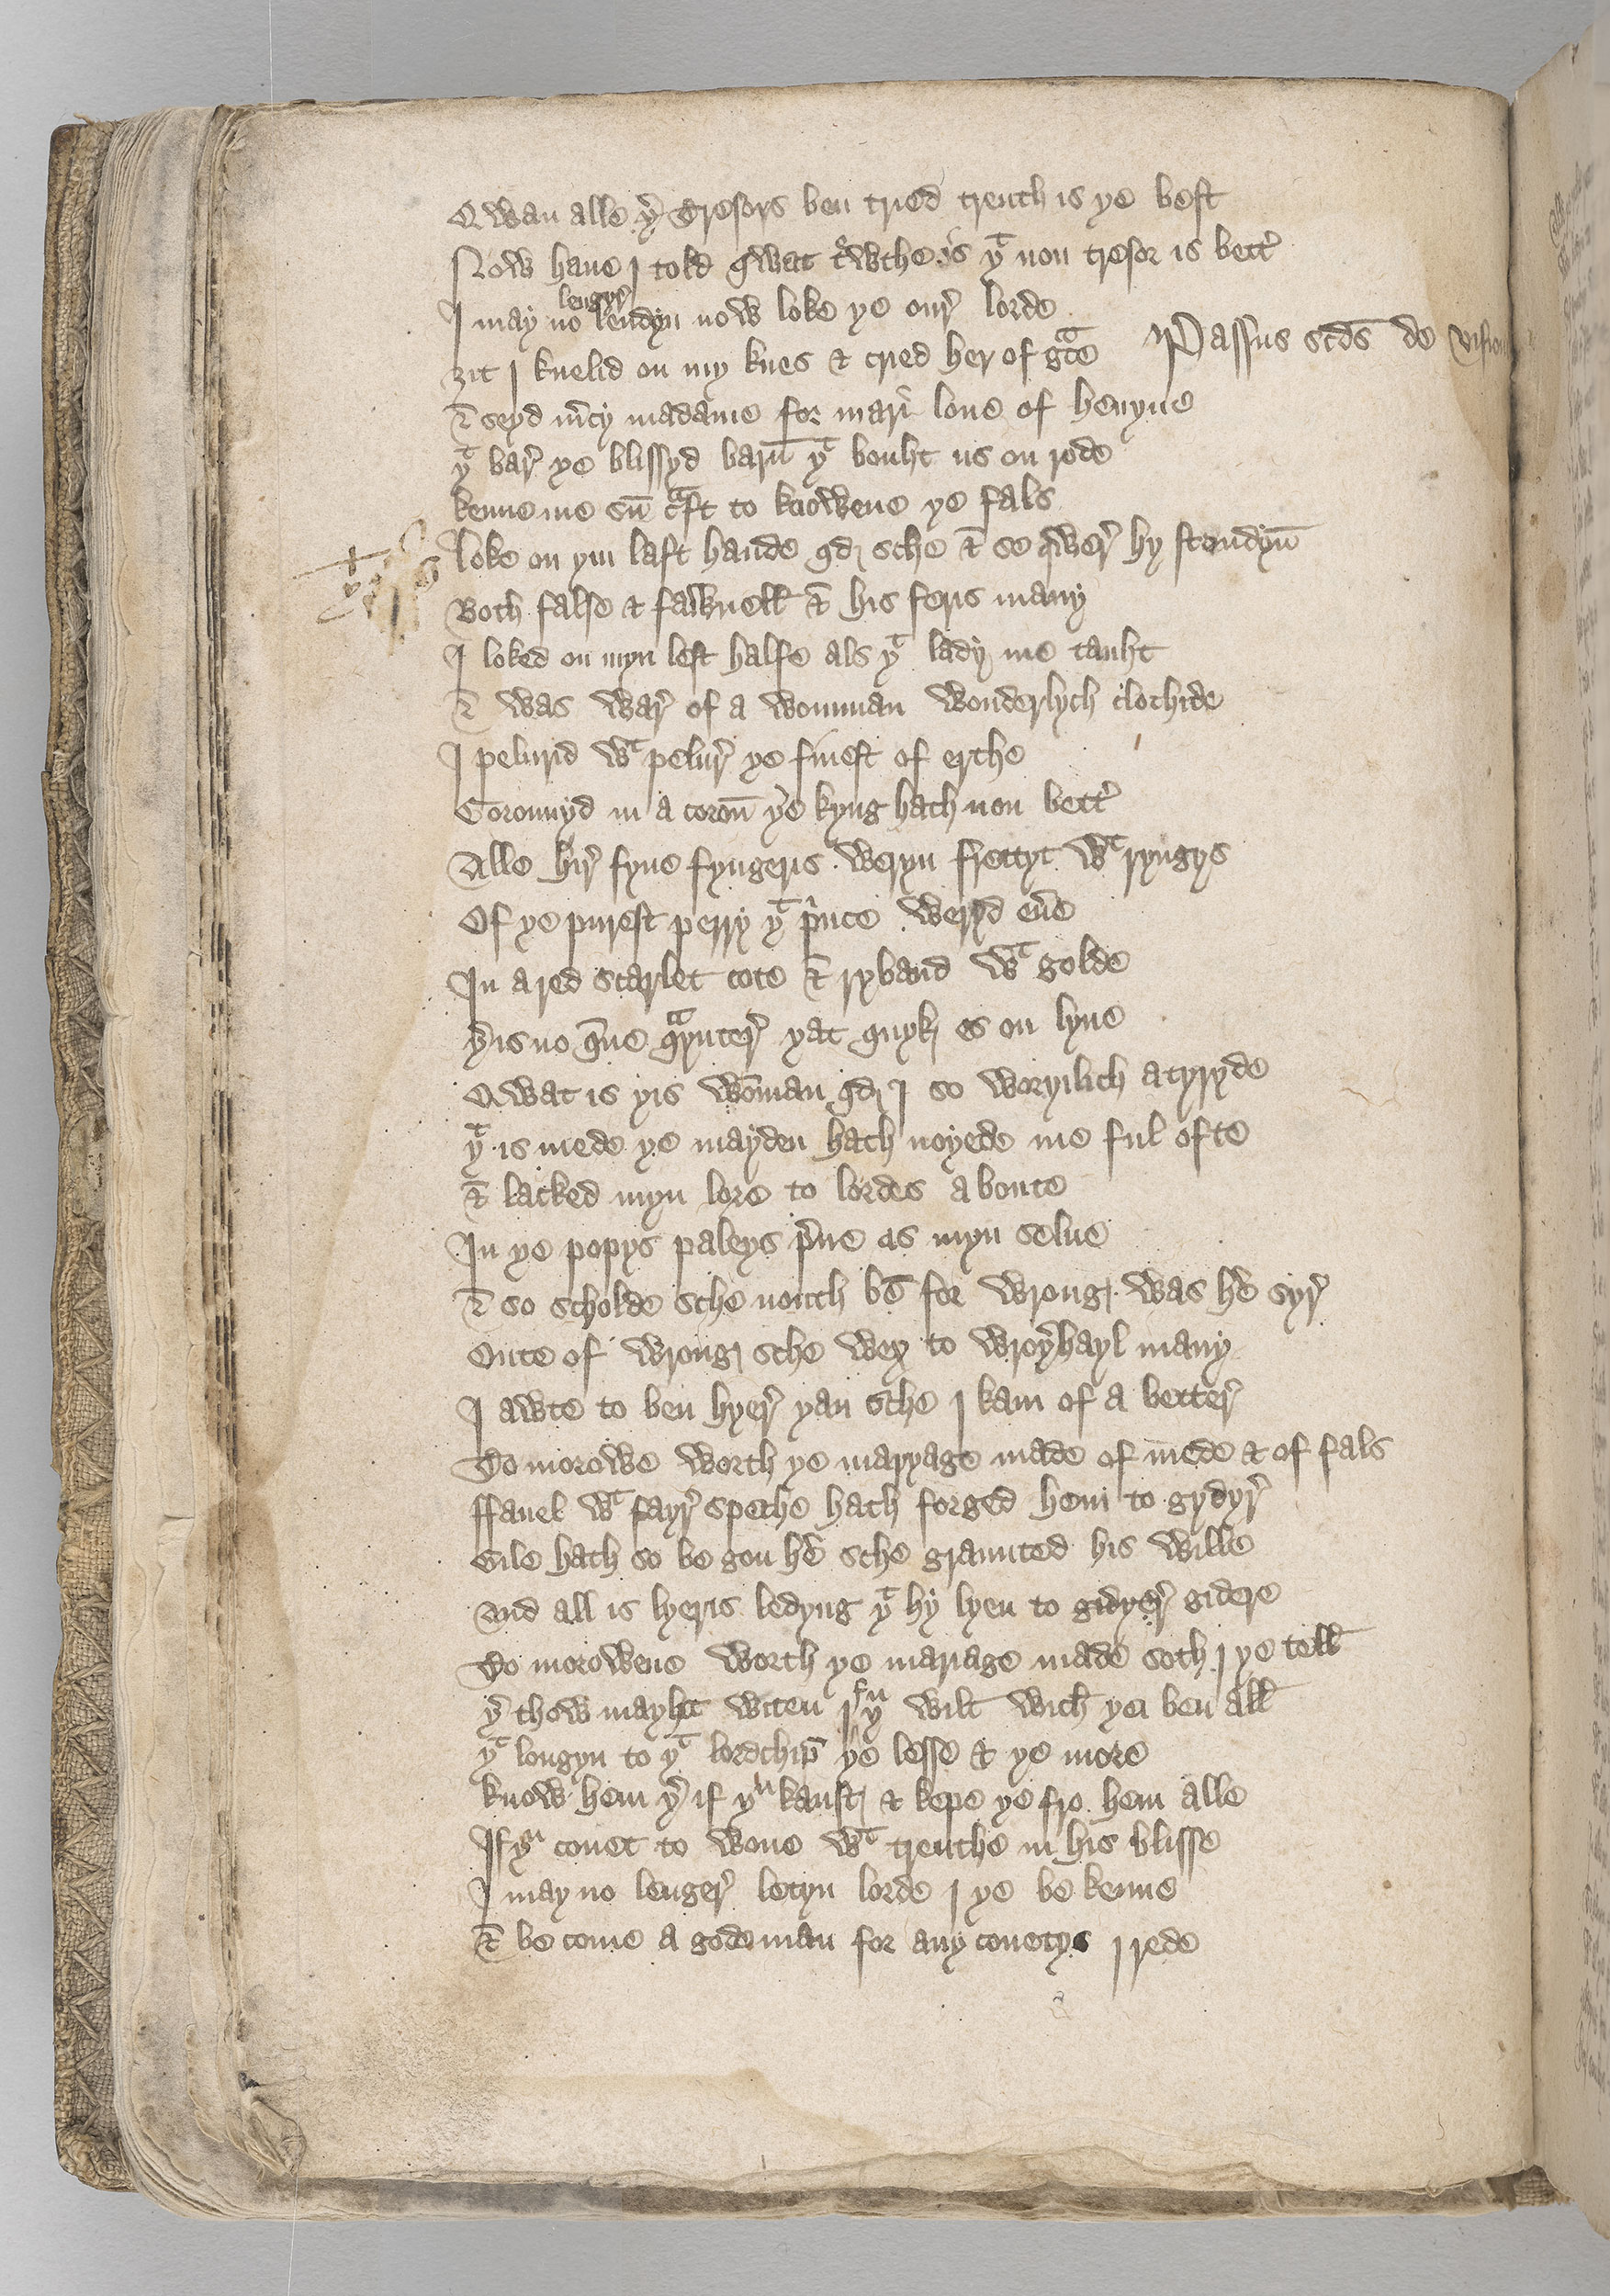 Qwan alle yͬ Tresors ben tried treuth is ye best
Now haue I told qwat trͥwthe is yͭ non tresor is bettͬ
I may no lengyr lendyn now loke ye ourͬ lorde
ȝit I knelid on my knes & cried her of gͣce Passus scds̄ de vision
& seyd m̄cy madame for mari loue of heuyne
yͭ barͬ ye blissyd barn̄ yͭ bouht us on rode
kenne me su̅ cͣft to knowene ye fals
loke on yin laft hande qd sche & se qwerͬ hy stondyn̄
Both false & fauwell & his feris many
I loked on myn left halfe als yͭ lady me tauht
& was warͬ of a womman wonderlych clothide
I pelurid wͭ pelurͬ ye finest of erthe
Coronnyd in a coron̄ ye kyng hath non bettͬ
Alle hirͬ fyne fyngeris weryn frettyt wͭ ryngys
Of ye purest perry yͭ pͥnce weryd eu̅e
In a red scarlet cote & ryband wͭ golde
yͬ is no qu̅ne qͣynterͬ yat quyk es on lyue
Qwat is yis wōman qd I so woryilich atyryde
yͭ is mede ye mayden hath noyede me ful ofte
& lacked myn lore to lordes aboute
In ye popys paleys pͬue as myn selue
& so scholde sche nouth be for wrong was hͬe syrͬ
Oute of wrong sche wex to wroyͬhayl many
I awte to ben hyerͬ yan sche I kam of a betterͬ
To morowe worth ye maryage made of mede & of fals
ffauel wͭ fayrͬ speche hath forged hem to gydyrͬ
Gile hath so be gon hͬe sche graunted his wille
And all is lyeris ledyng yͭ hy lyen to gidyerͬ gidere
To morowene worth ye mariage made soth I ye tell
yͬ thow mayht witen if yͧ wilt wich yei ben all
yͭ longyn to yͭ lordchip̄ ye lesse & ye more
know hem yͬ if yͧ kanst & kepe ye fro hem alle
If yͧ couet to wone wͭ treuthe in his blisse
I may no lengerͬ letyn lorde I ye be kenne
& be come a gode man for any couetys I rede